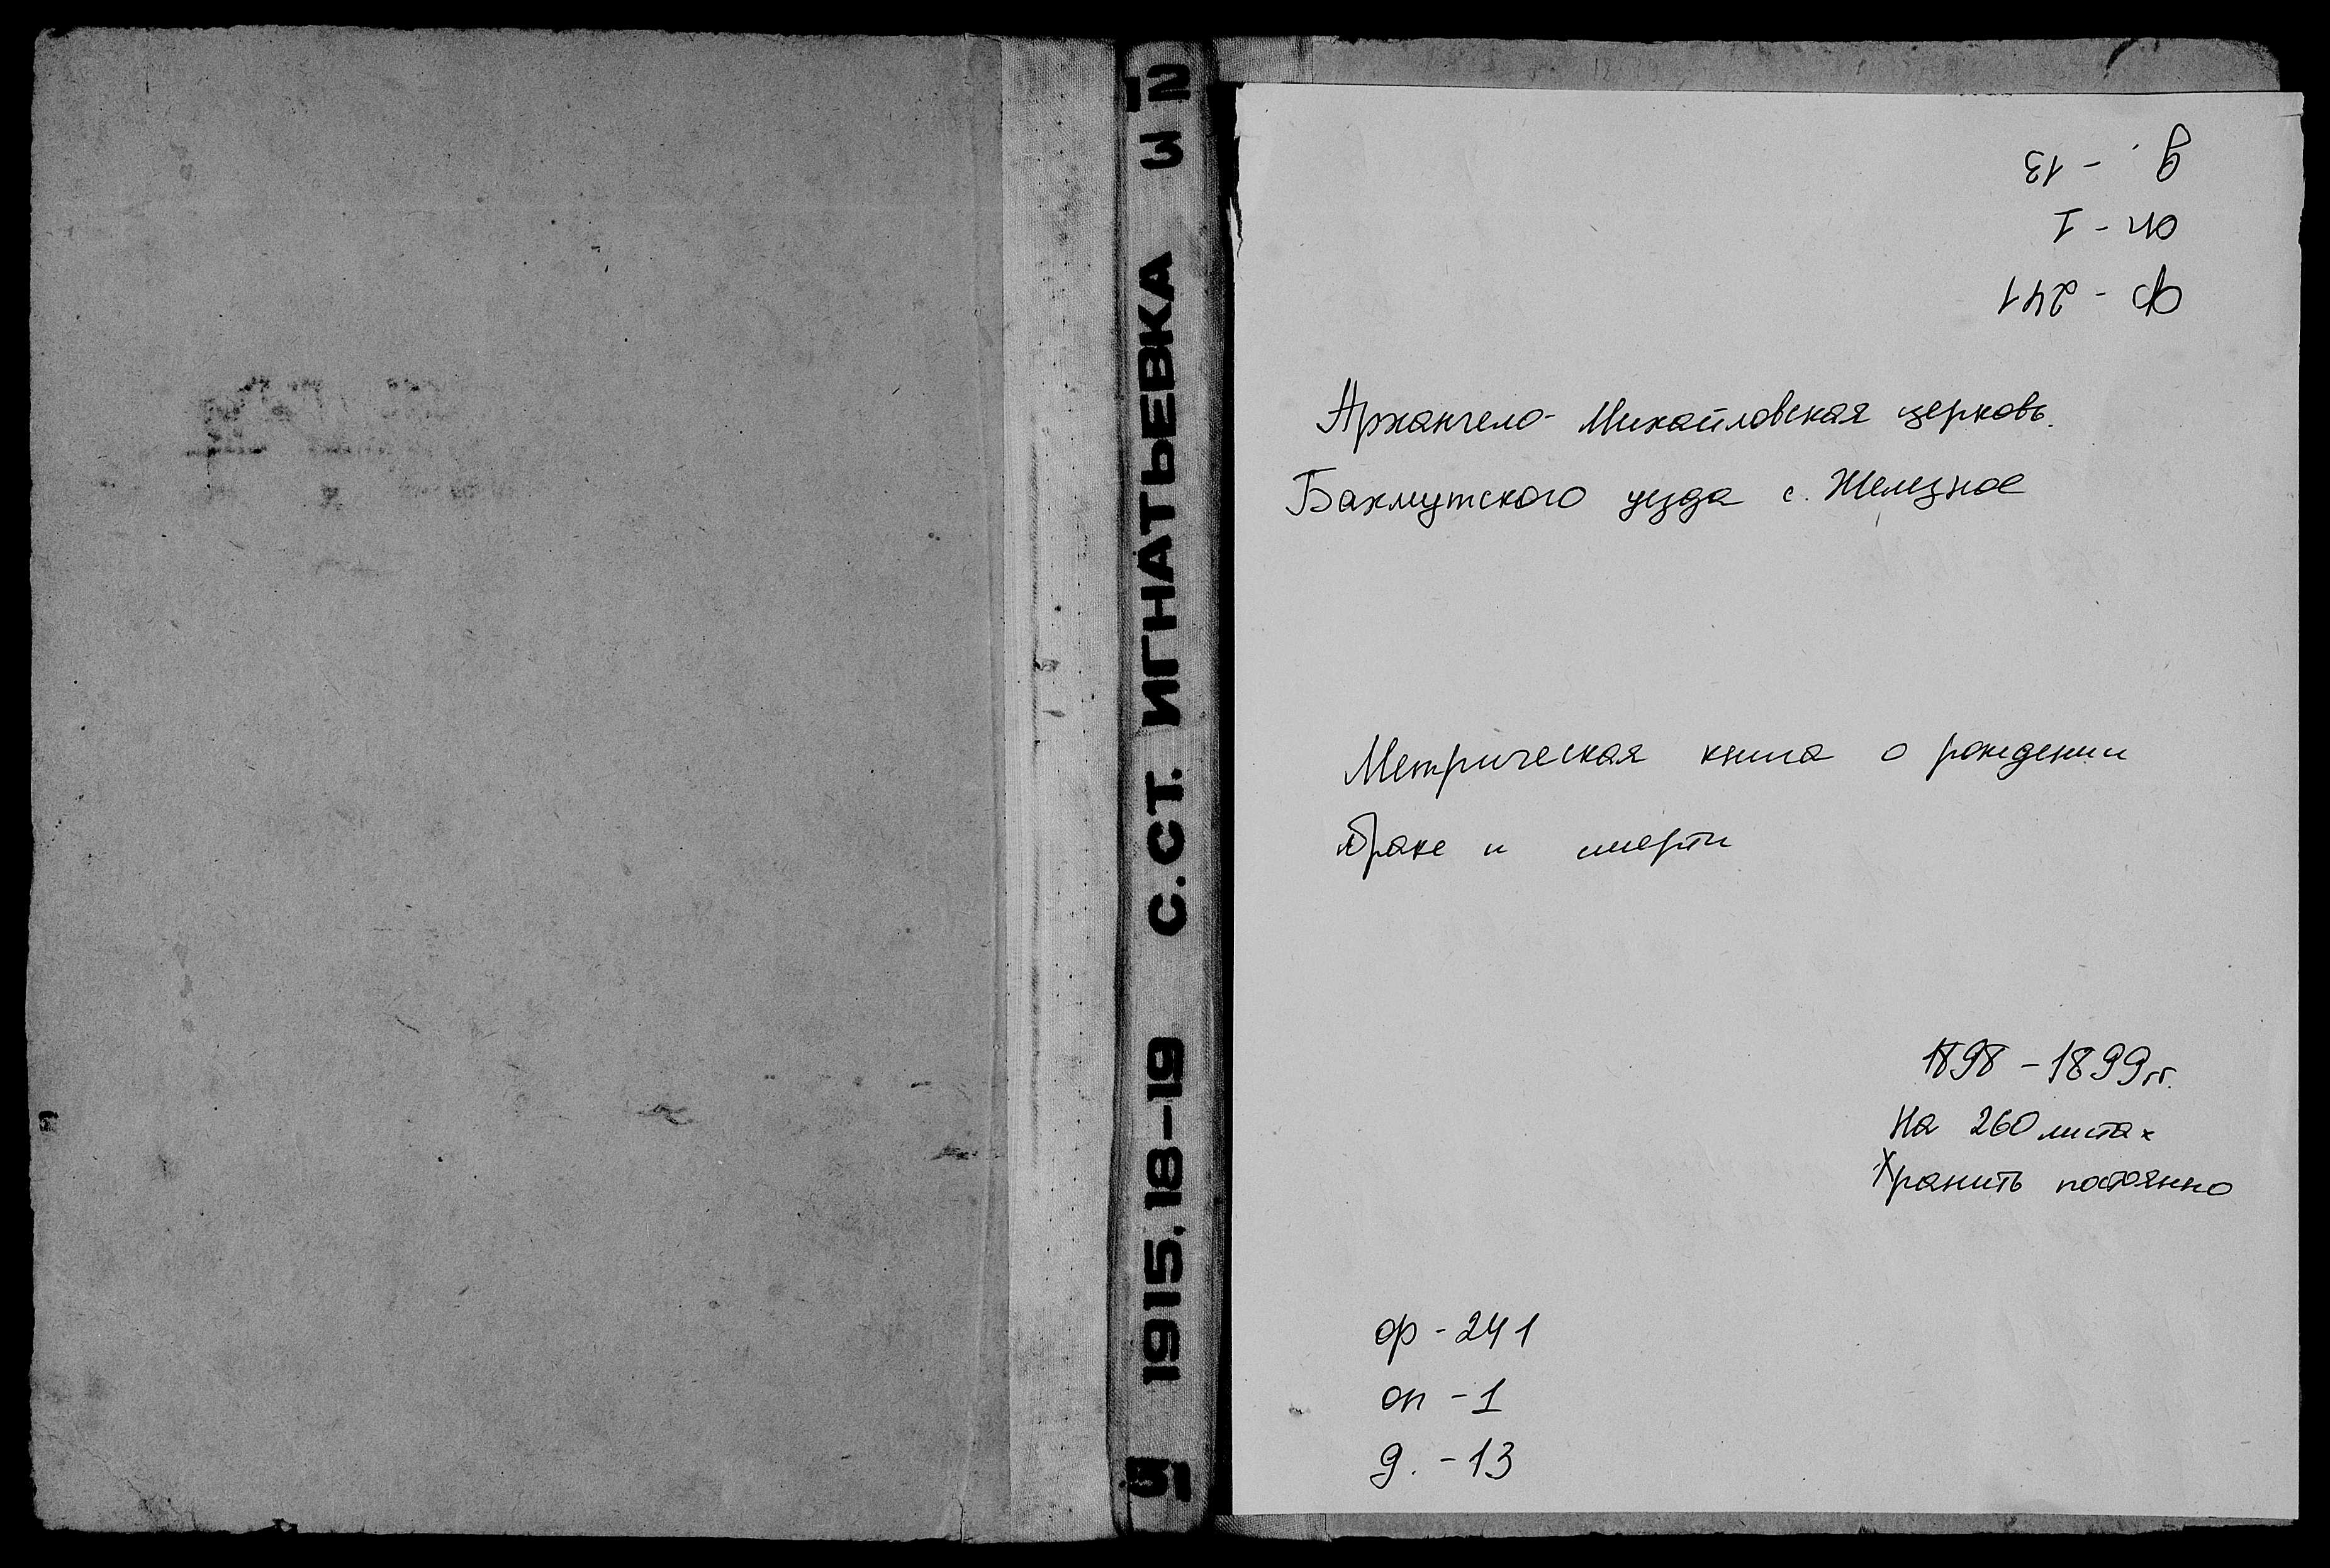 1915, 18-19 С. СТ. ИГНАТЬЕВКА
д. - 13
оп - 1
ф - 241
Архангело-Михайловская церковь.
Бахмутского уезда с. Железное
Метрическая книга о рождении
браке и смерти
1898 - 1899 гг.
На 260 листах
Хранить постоянно
ф - 241
оп - 1
д. - 13